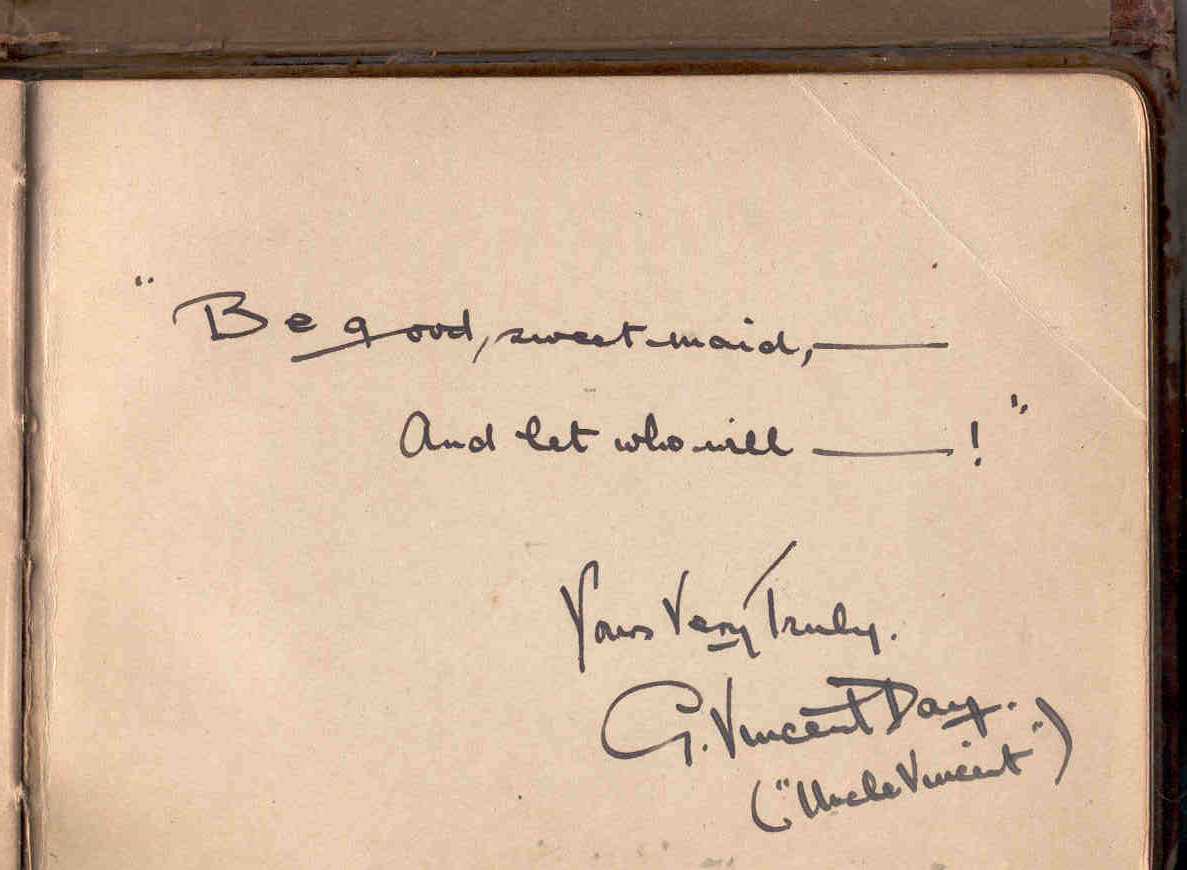 "Be good, sweet maid,——
And let who will ——!"
Yours Very Truly.
G. Vincent Day.
("Uncle Vincent")